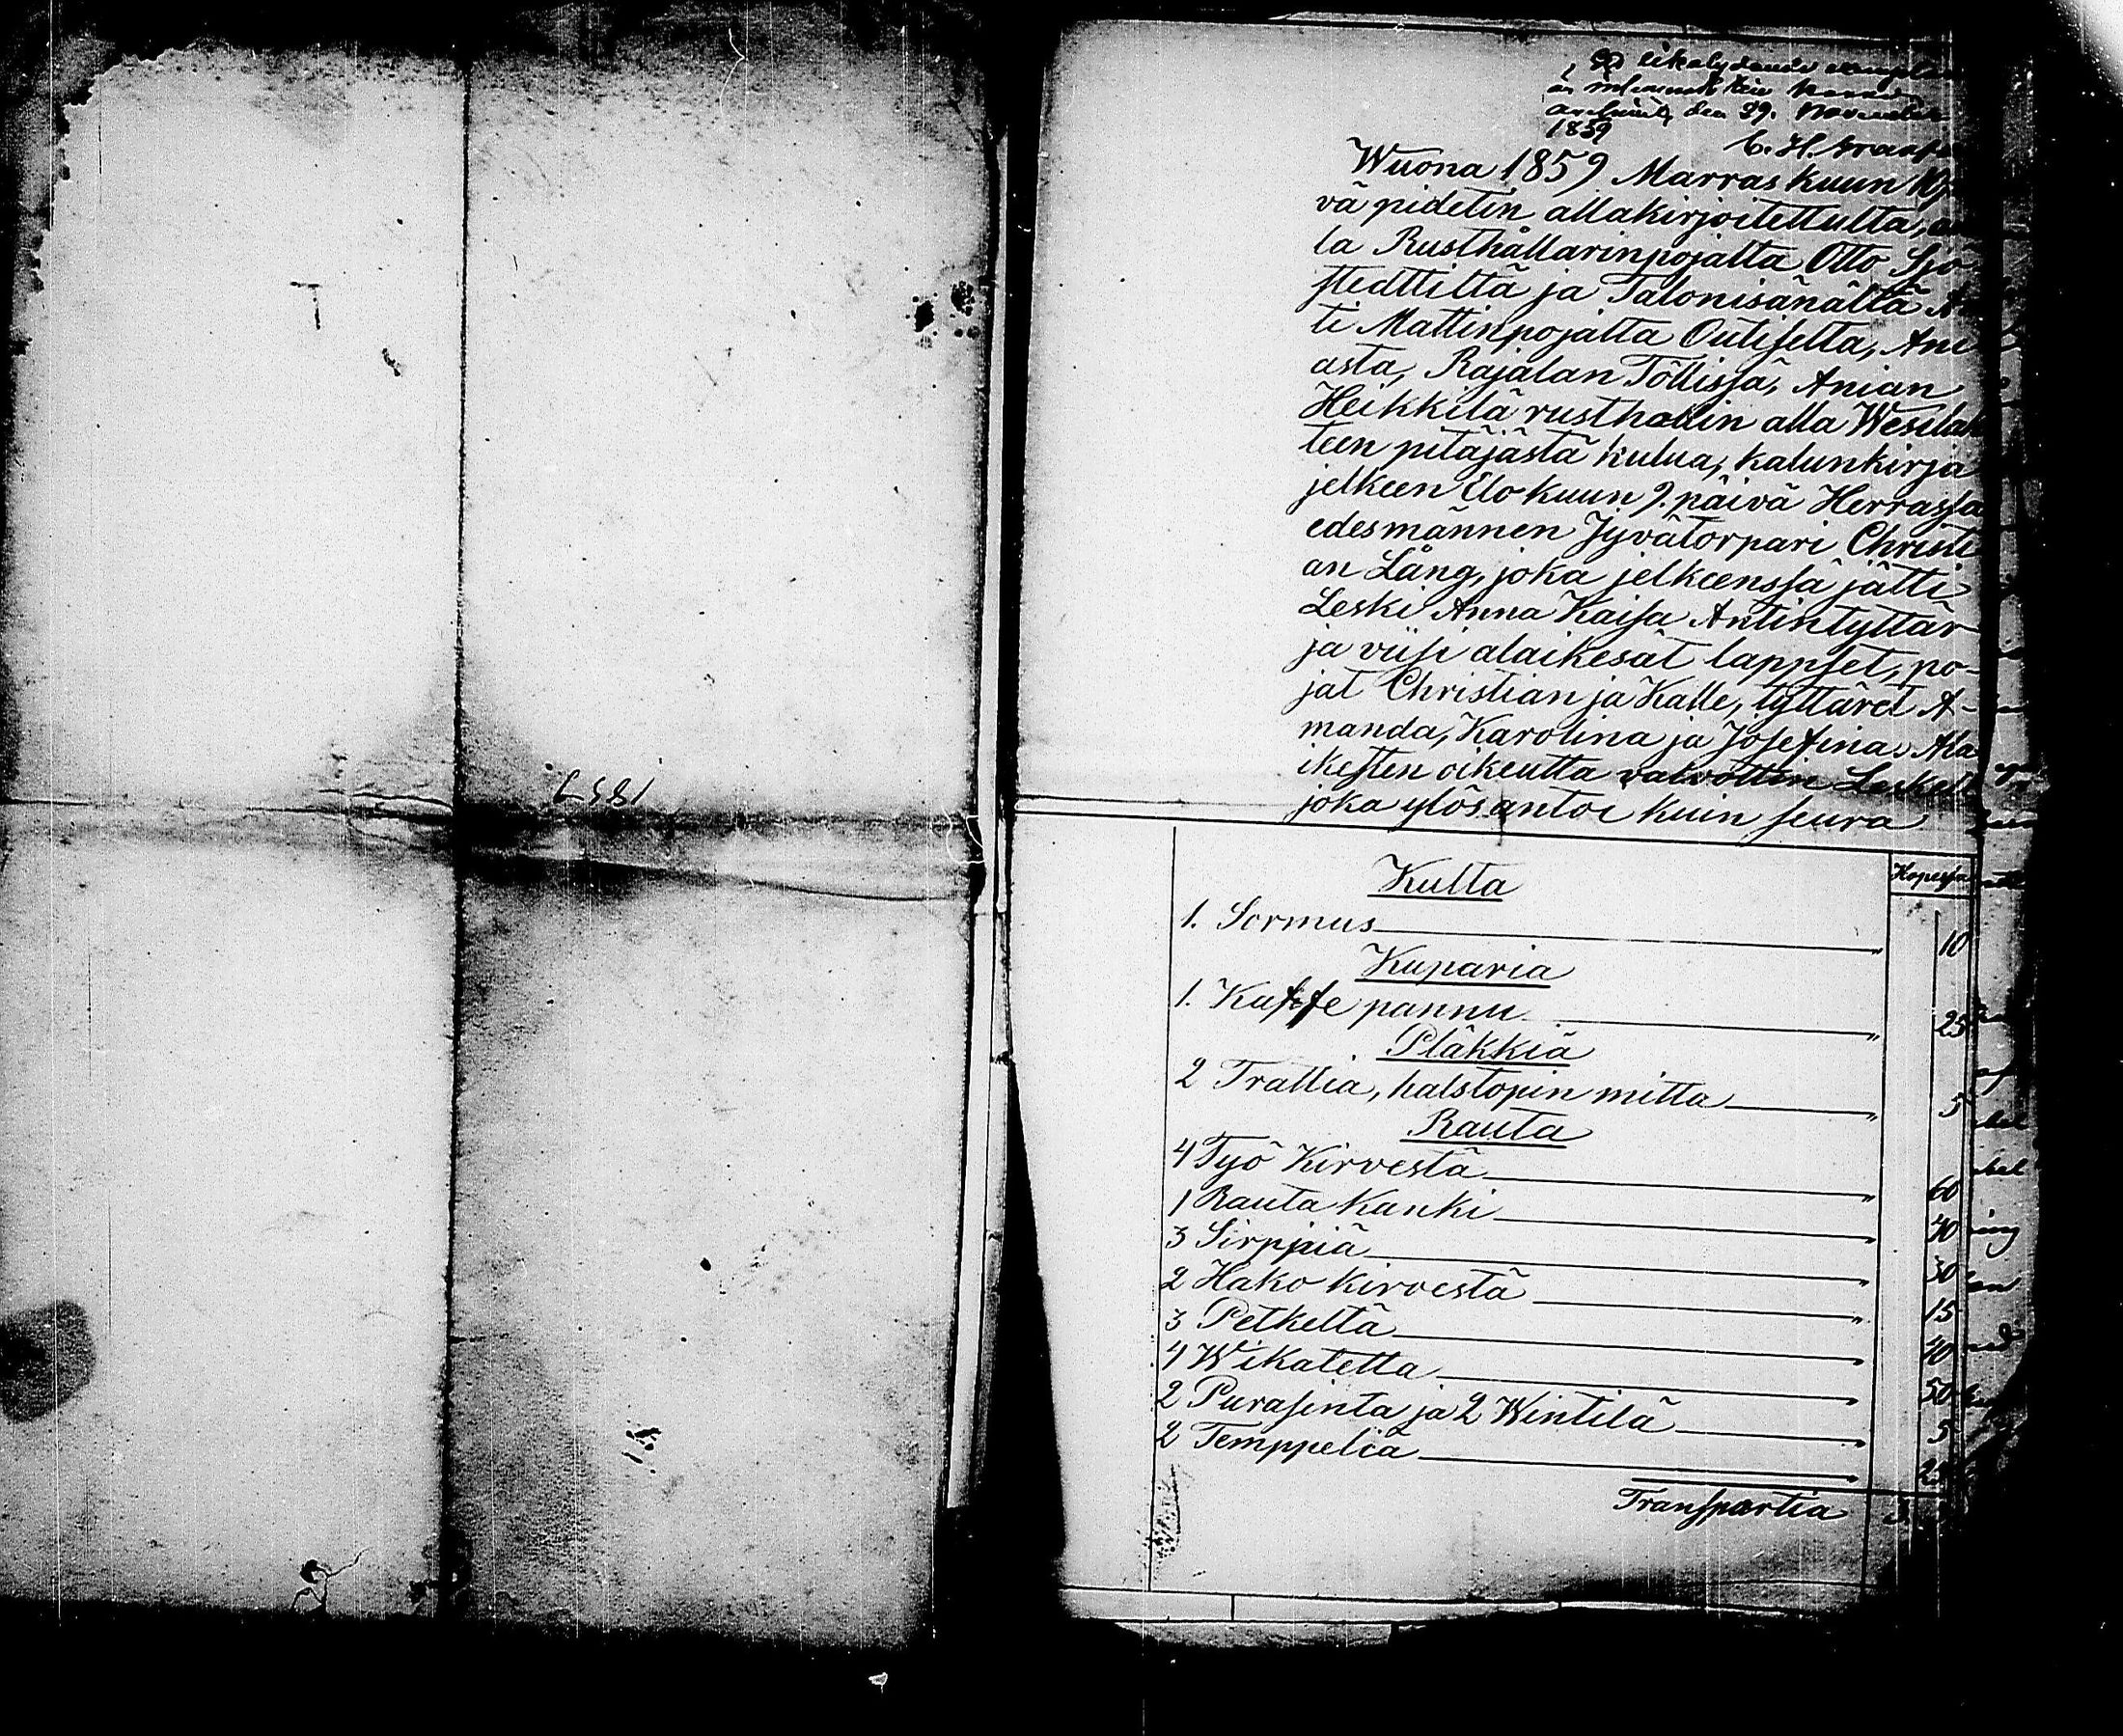 1857
likalydande
den 29. November
1859
C. H.
Wuona 1859 Marraskuun
vä pidetin allakirjoitettulta,
la Rusthållarinpojalta Otto Sjö-
stedttiltä ja Talonisänältä
ti Mattinpojalta Outiselta, Ani
asta, Rajalan Töllissä, Anian
Heikkilä rusthollin alla Wesilah
teen pitäjästä kulua, kalunkirja
jelkeen Elokuun 9. päivä Herrassa
edesmännen Jyvätorpari Christi
an Lång, joka jelkeenssä jätti
Leski Anna Kaisa Antintyttär
ja viisi alaikesät lappset, po-
jat Christian ja Kalle, tyttäret A-
manda, Karolina ja Josefina. Ala
ikesten oikeutta valvottin Leskelt
joka ylösantoi kuin seura
Kulta
1. Sormus " 10
Kuparia
1. Kaffe pannu " 25
Pläkkiä
2 Trattia, halstopin mitta " 5
Rauta
4 Työ Kirvestä " 60
1 Rauta Kanki " 40
3 Sirppiä " 30
2 Hako kirvestä " 15
3 Petkeltä " 40
4 Wikatetta " 50
2 Purasinta ja 2 Wintilä " 5
2 Temppeliä "
Transportia 3